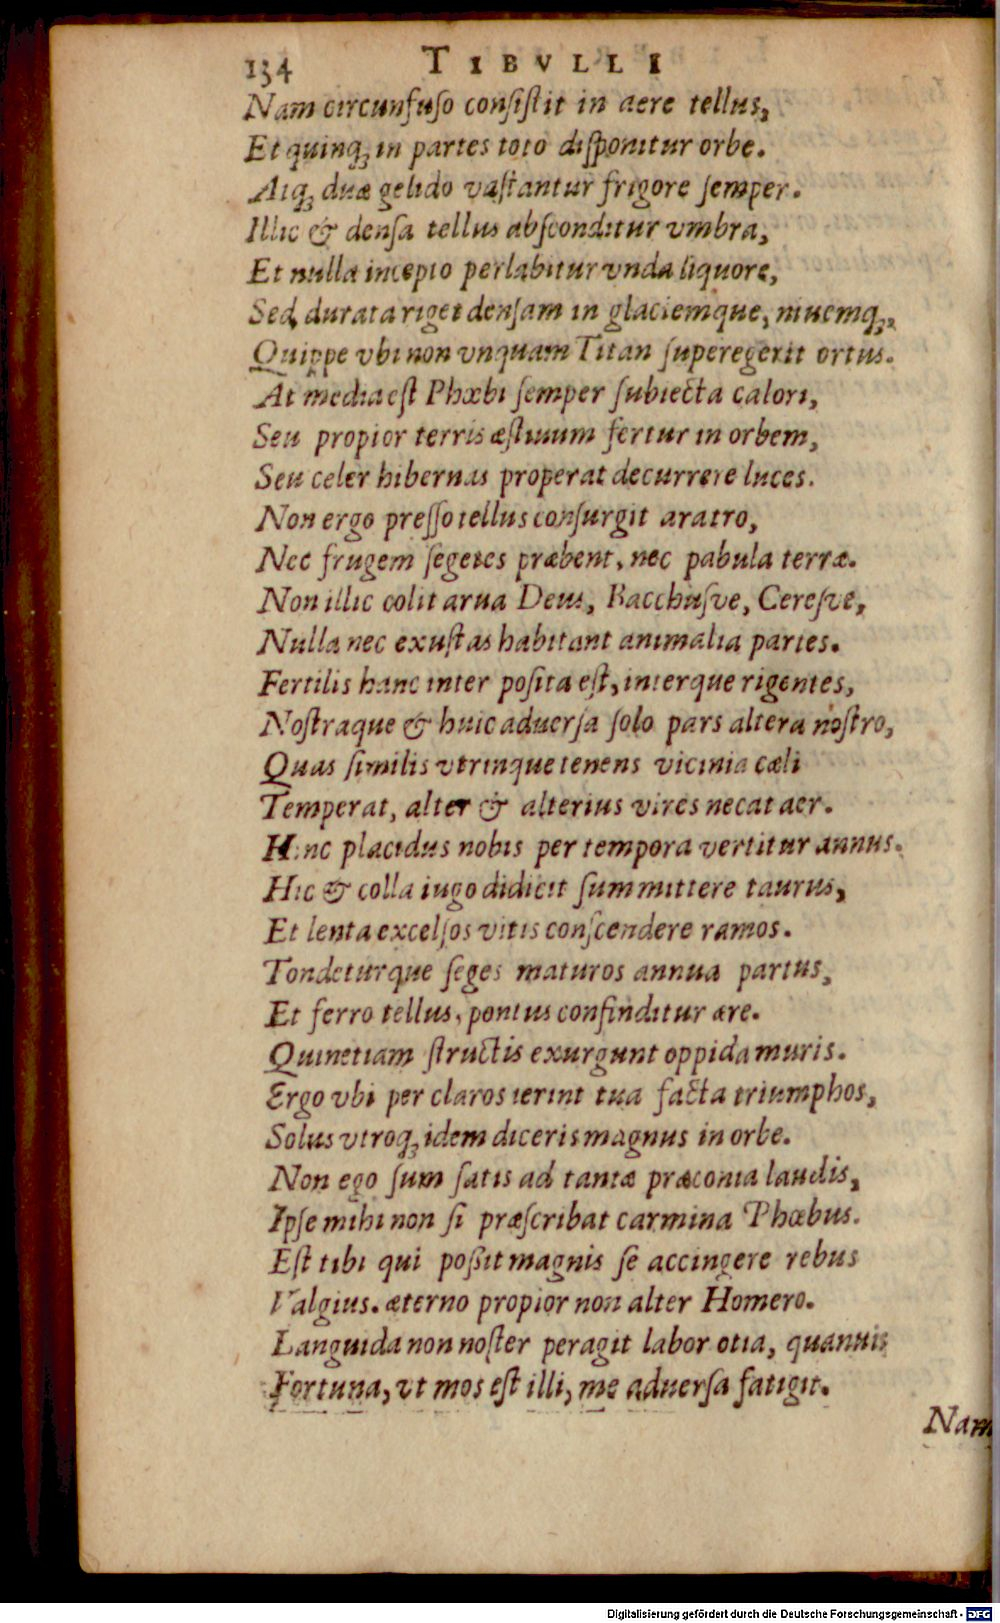 134 TIBVLLI
Nam circunfuso consistit in aere tellus,
Et quinq; in partes toto disponitur orbe.
Atq; duæ gelido vastantur frigore semper.
Illic & densa tellus absconditur vmbra,
Et nulla incepto perlabitur vnda liquore,
Sed durata riget densam in glaciemque, niuemq;,
Quippe vbi non vnquam Titan superegerit ortus.
At media est Phœbi semper subiecta calori,
Seu propior terris æstiuum fertur in orbem,
Seu celer hibernas properat decurrere luces.
Non ergo presso tellus consurgit aratro,
Nec frugem segetes præbent, nec pabula terræ.
Non illic colit arua Deus, Bacchusve, Ceresve,
Nulla nec exustas habitant animalia partes.
Fertilis hanc inter posita est, interque rigentes,
Nostraque & huic aduersa solo pars altera nostro,
Quas similis vtrinque tenens vicinia cæli
Temperat, alter & alterius vires necat aer.
Hinc placidus nobis per tempora vertitur annus.
Hic & colla iugo didicit summittere taurus,
Et lenta excelsos vitis conscendere ramos.
Tondeturque seges maturos annua partus,
Et ferro tellus, pontus confinditur ære.
Quinetiam structis exurgunt oppida muris.
Ergo vbi per claros ierint tua facta triumphos,
Solus vtroq; idem diceris magnus in orbe.
Non ego sum satis ad tantæ præconia laudis,
Ipse mihi non si præscribat carmina Phœbus.
Est tibi qui possit magnis se accingere rebus
Valgius. æterno propior non alter Homero.
Languida non noster peragit labor otia, quanuis
Fortuna, vt mos est illi, me aduersa fatigit.
Nam
Digitalisierung gefördert durch die Deutsche Forschungsgemeinschaft - DFG